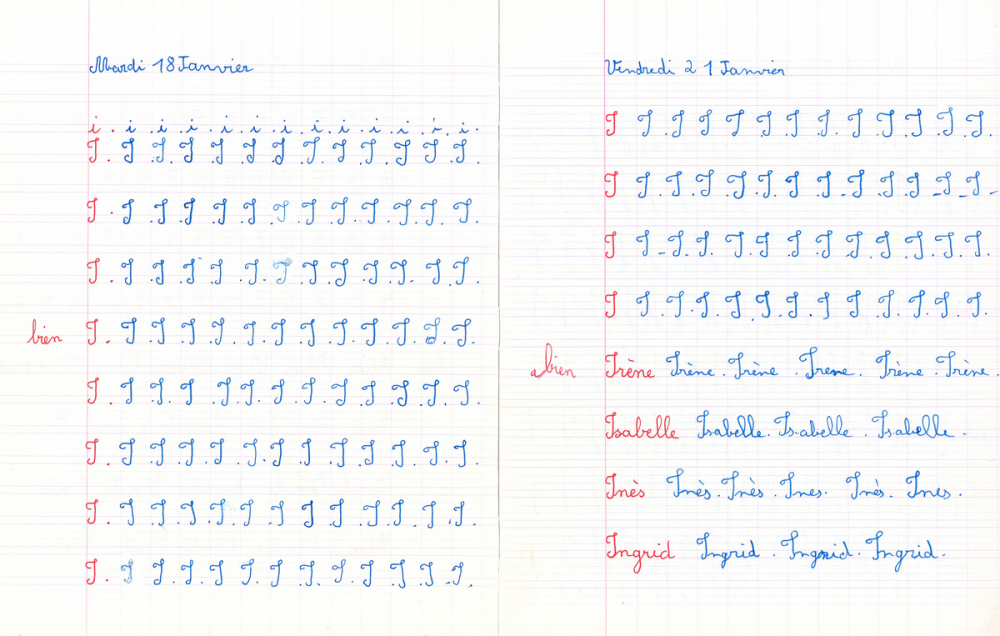 Mardi 18 Janvier
i . i . i . i . i . i . i . i . i . i . i . i . i .
I . I . I . I . I . I . I . I . I . I . I . I . I .
I . I . I . I . I . I . I . I . I . I . I . I . I .
I . I . I . I . I . I . I . I . I . I . I . I . I .
bien I . I . I . I . I . I . I . I . I . I . I . I . I .
I . I . I . I . I . I . I . I . I . I . I . I . I .
I . I . I . I . I . I . I . I . I . I . I . I . I .
I . I . I . I . I . I . I . I . I . I . I . I . I .
I . I . I . I . I . I . I . I . I . I . I . I . I .
Vendredi 21 Janvier
I I . I . I I . I I . I . I . I I . I I .
I I . I . I . I . I . I . I . I . I . I . I . I .
I I . I . I . I . I . I . I . I . I . I . I . I .
I I . I . I . I . I . I . I . I . I . I . I . I .
a bien Irène Irène . Irène . Irene . Irène . Irène .
Isabelle Isabelle . Isabelle . Isabelle .
Inès Inès . Inès . Ines . Inès . Ines .
Ingrid Ingrid . Ingrid . Ingrid .